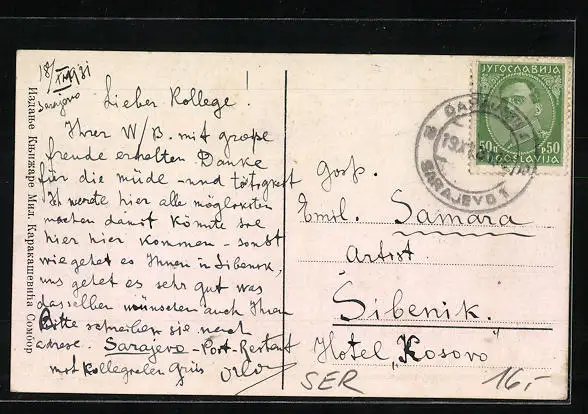 18/XI 1931
Sarajevo
Lieber Kollege!
Ihrer W/B. mit große
freude erhalten Danke
für die müde - und tätigkeit
Ich werde hier alle möglexiten
machen damit könnte sie
hier hier kommen - sonst
wie gehet es Ihnen in Sibenik,
uns gehet es sehr gut was
dasselben wünschen auch Ihnen
Bitte schreiben sie nach
adrese. Sarajevo - Post-Restant
mit kollegialen Grüs
Издање Књижаре Мил. Каракашевића Сомбор
ЈУГОСЛАВИЈА
50 P. 50
JUGOSLAVIJA
САРАЈЕВО 1
SARAJEVO 1
Gosp.
Emil. Samara
Artist
Šibenik.
Hotel „Kosovo"
SER
16,-